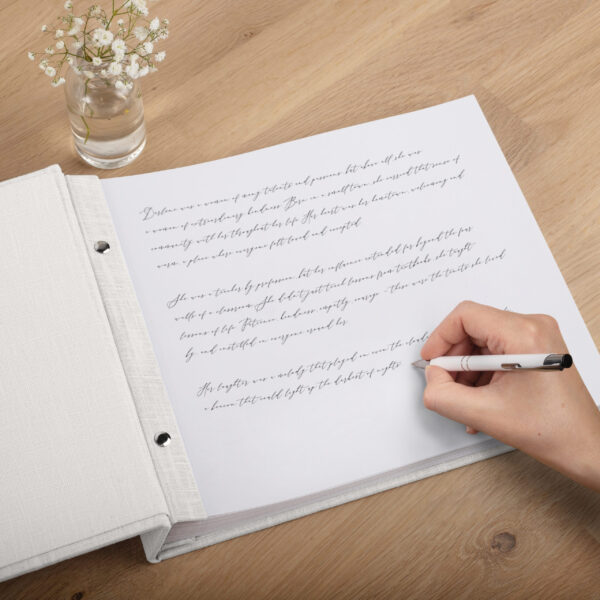 Darlene was a woman of many talents and passions, but above all she was
a woman of extraordinary kindness. Born in a small town, she carried that sense of
community with her throughout her life. Her heart was her hometown, welcoming and
warm, a place where everyone felt loved and accepted.
She was a teacher by profession, but her influence extended far beyond the four
walls of a classroom. She didn't just teach lessons from textbooks; she taught
lessons of life. Patience, kindness, empathy, courage - these were the traits she lived
by and instilled in everyone around her.
Her laughter was a melody that played in even the
a beacon that could light up the darkest of nights.